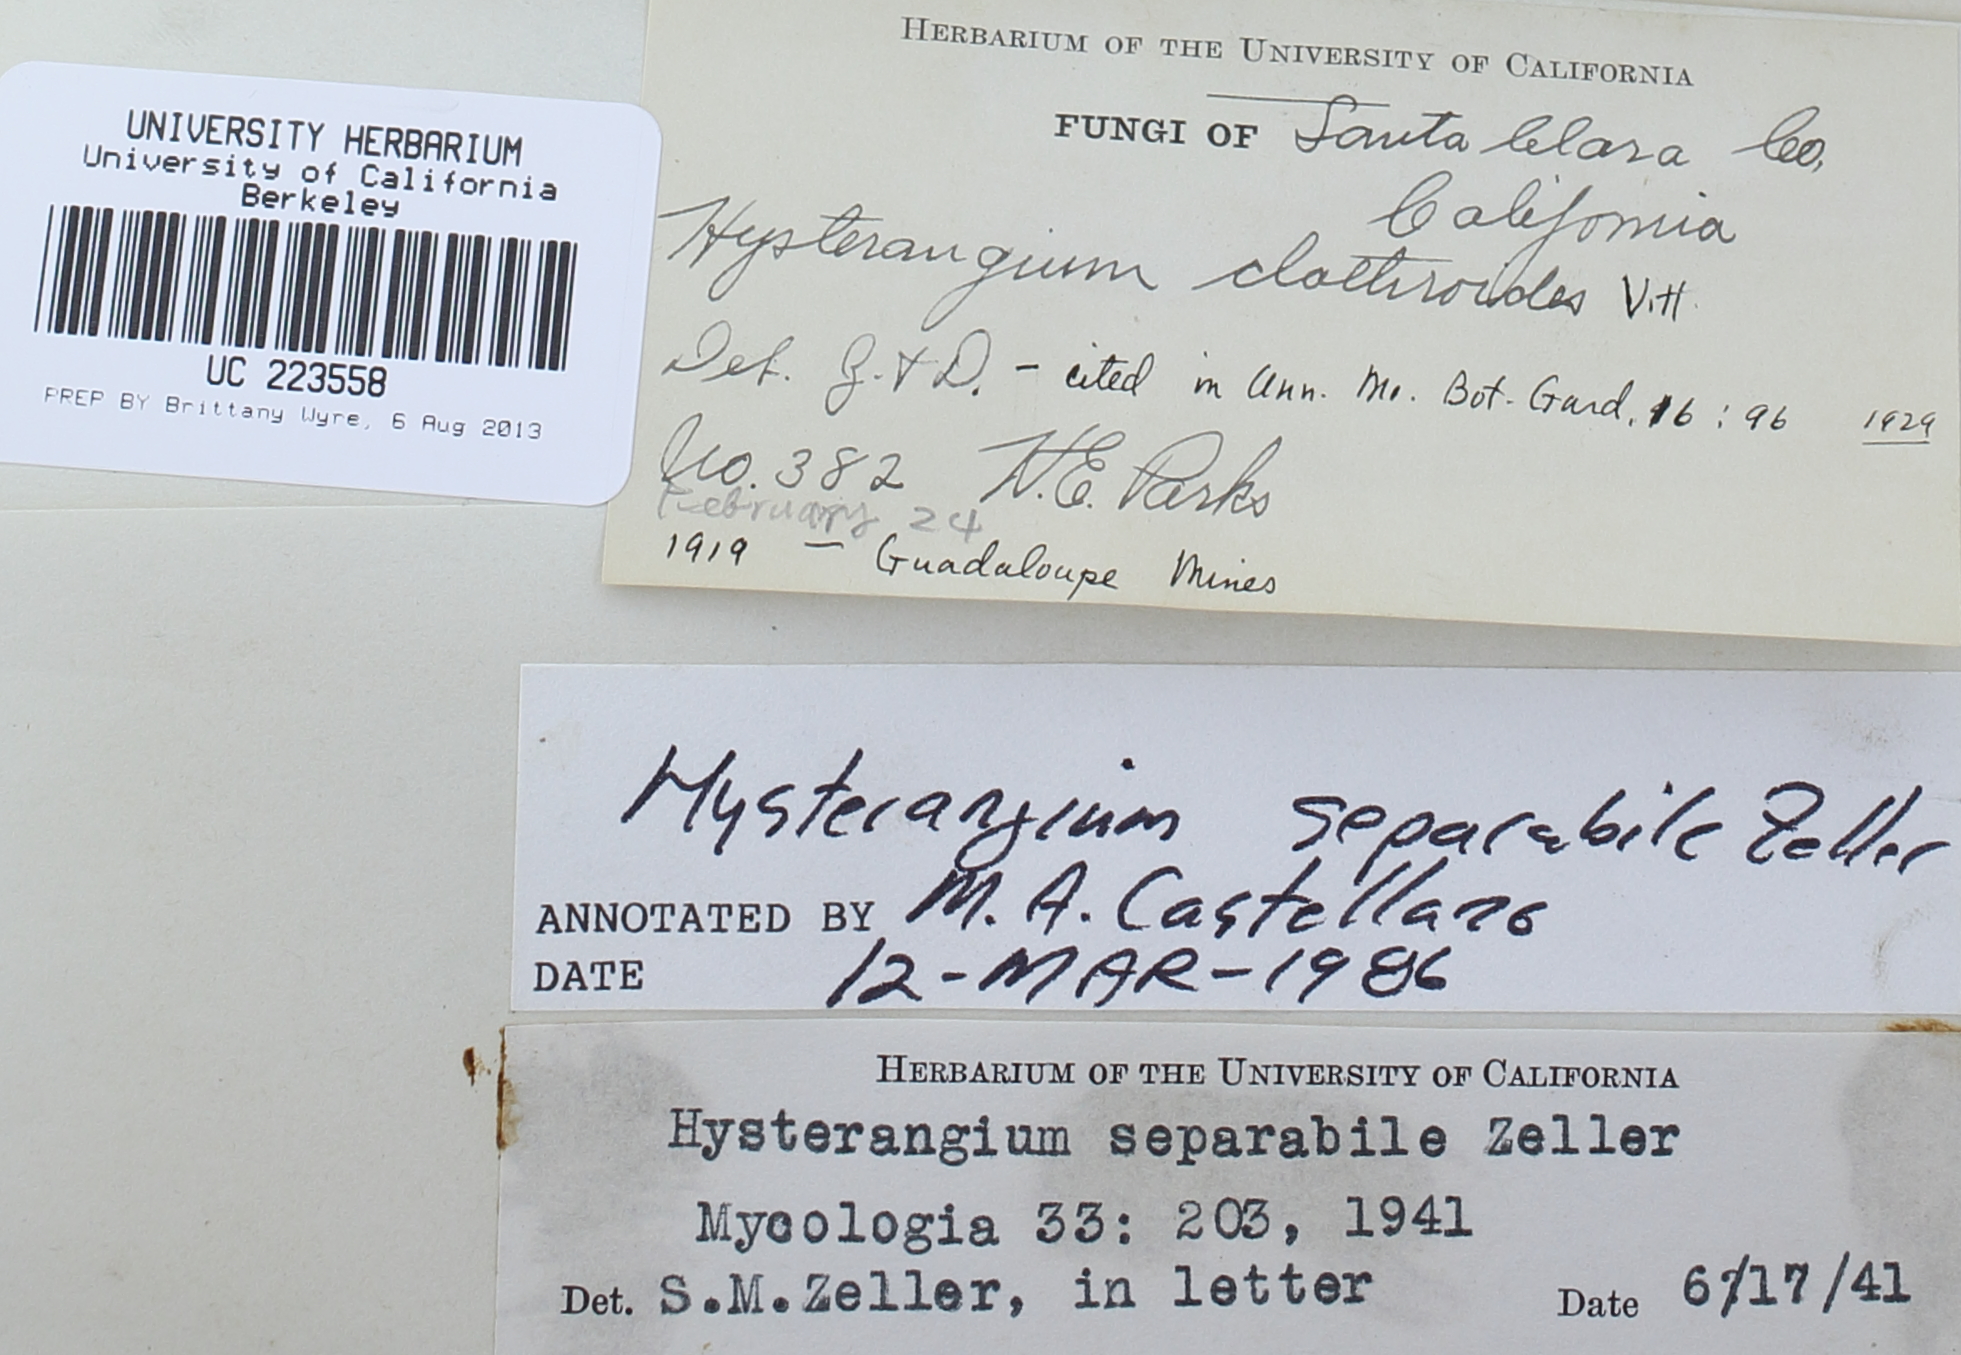 UNIVERSITY HERBARIUM
University of California
Berkeley
UC 223558
PREP BY Brittany Wyre, 6 Aug 2013
HERBARIUM OF THE UNIVERSITY OF CALIFORNIA
FUNGI OF Santa Clara Co,
California
Hysterangium clathroides Vitt.
Det. Z. + D. - cited in Ann. Mo. Bot. Gard. 16 : 96 1929
No. 382 H.E. Parks
February 24
1919 — Guadaloupe Mines
Hysterangium separabile Zeller
ANNOTATED BY M. A. Castellano
DATE 12-MAR-1986
HERBARIUM OF THE UNIVERSITY OF CALIFORNIA
Hysterangium separabile Zeller
Mycologia 33: 203, 1941
Det. S.M.Zeller, in letter Date 6/17/41